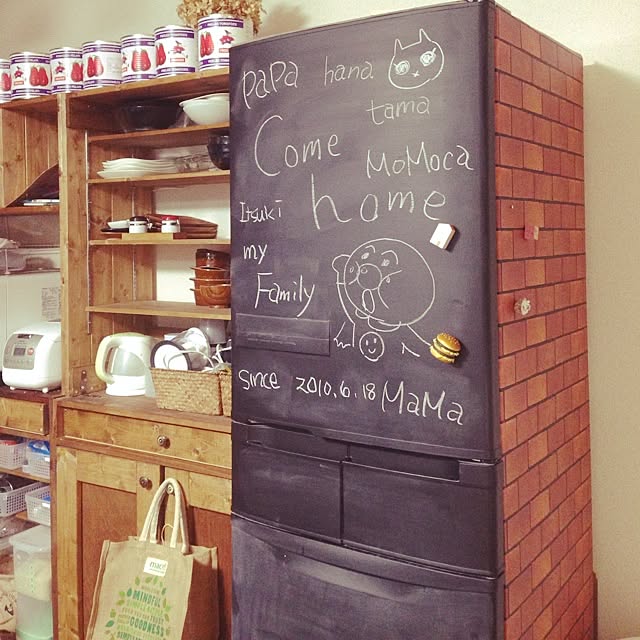 papa hana
tama
Come
MoMoca
Itsuki home
my
Family
since 2010.6.18 MaMa
MINDFUL
GOODNESS